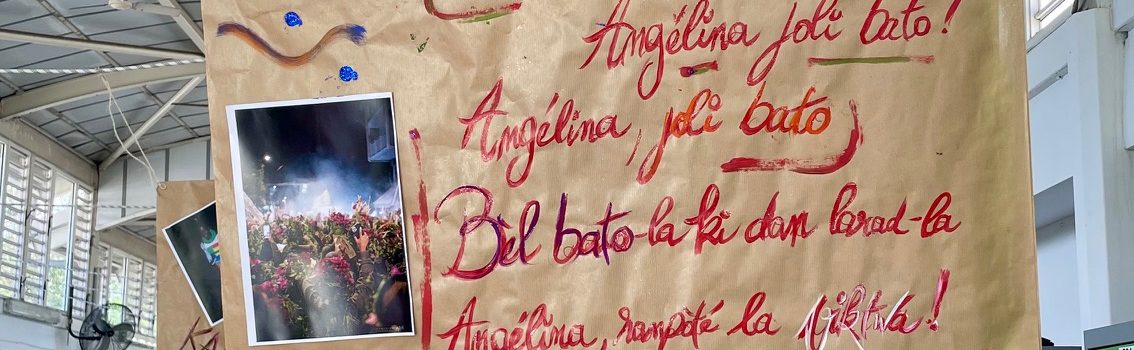 Angélina joli bato!
Angélina, joli bato
Bèl bato-la ki dan larad-la
Angélina, ranpòté la viktwa!